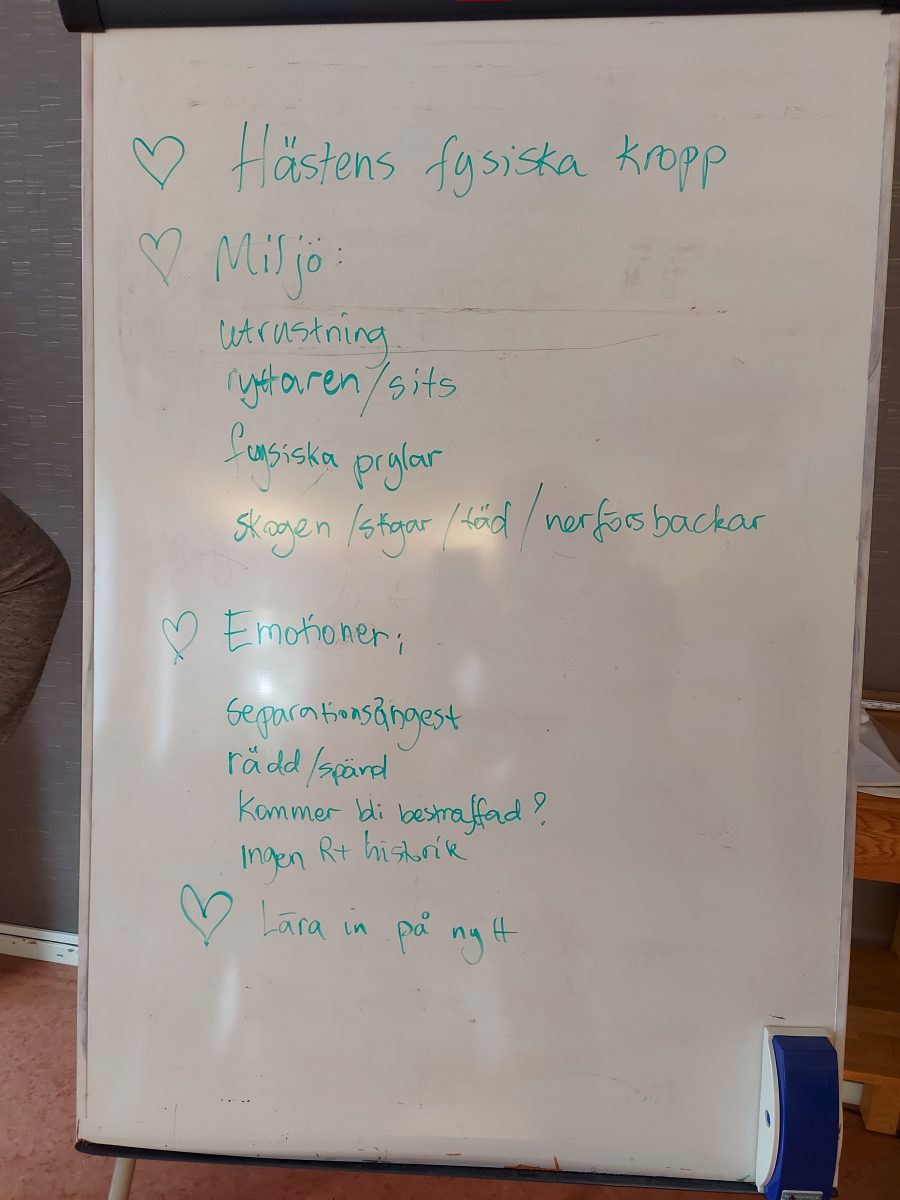 Hästens fysiska kropp
Miljö:
utrustning
ryttaren/sits
fysiska prylar
skogen /stigar /täd /nerförsbackar
Emotioner;
separationsångest
rädd/spänd
Kommer bli bestraffad?
Ingen R+ historik
Lära in på nytt